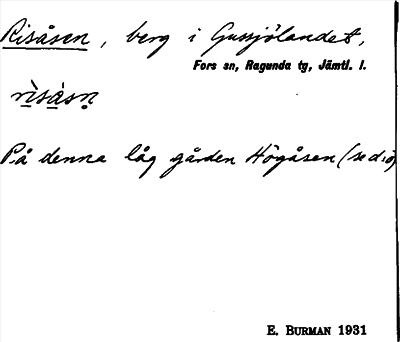 Risåsen, berg i Gussjölandet,
Fors sn, Ragunda tg, Jämtl. l.
rìsåsn̥
På denna låg gården Högåsen (se d:o)
E. BURMAN 1931